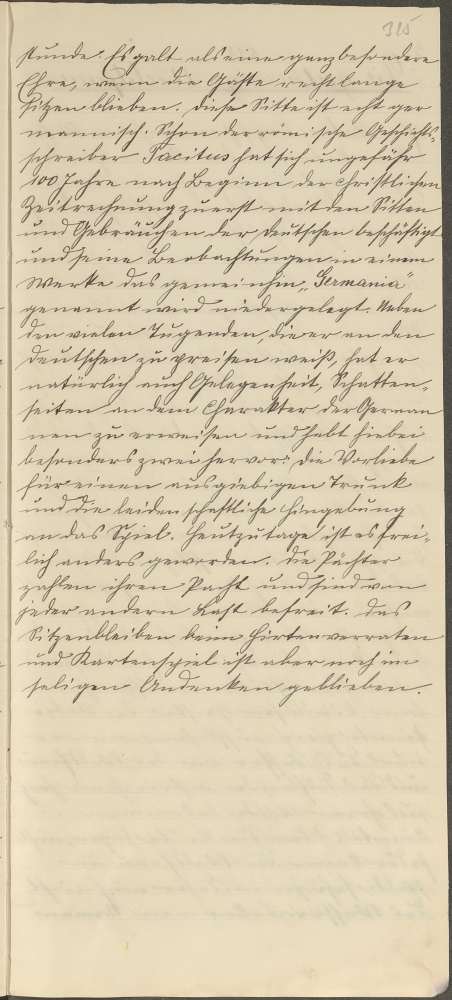 315
stunde. Es galt als eine ganz besondere
Ehre, wenn die Gäste recht lange
sitzen blieben. Diese Sitte ist echt ger
mannisch. Schon der römische Geschichts-
schreiber Tacitus hat sich ungefähr
100 Jahre nach Beginn der christlichen
Zeitrechnung zuerst mit den Sitten
und Gebräuchen der Deutschen beschäftigt
und seine Beobachtungen in einem
Werke das gemeinhin „Germania"
genannt wird niedergelegt. Neben
den vielen Tugenden, die er an den
Deutschen zu preisen weiß, hat er
natürlich auch Gelegenheit, Schatten-
seiten an dem Charakter der German
nen zu erweisen und hebt hiebei
besonders zwei hervor: die Vorliebe
für einen ausgiebigen Trunk
und die leidenschaftliche Hingebung
an das Spiel. Heutzutage ist es frei-
lich anders geworden. Die Pächter
zahlen ihren Pacht und sind von
jeder andern Last befreit. Das
Sitzenbleiben beim Hirtenverraten
und Kartenspiel ist aber noch im
seligen Andenken geblieben.